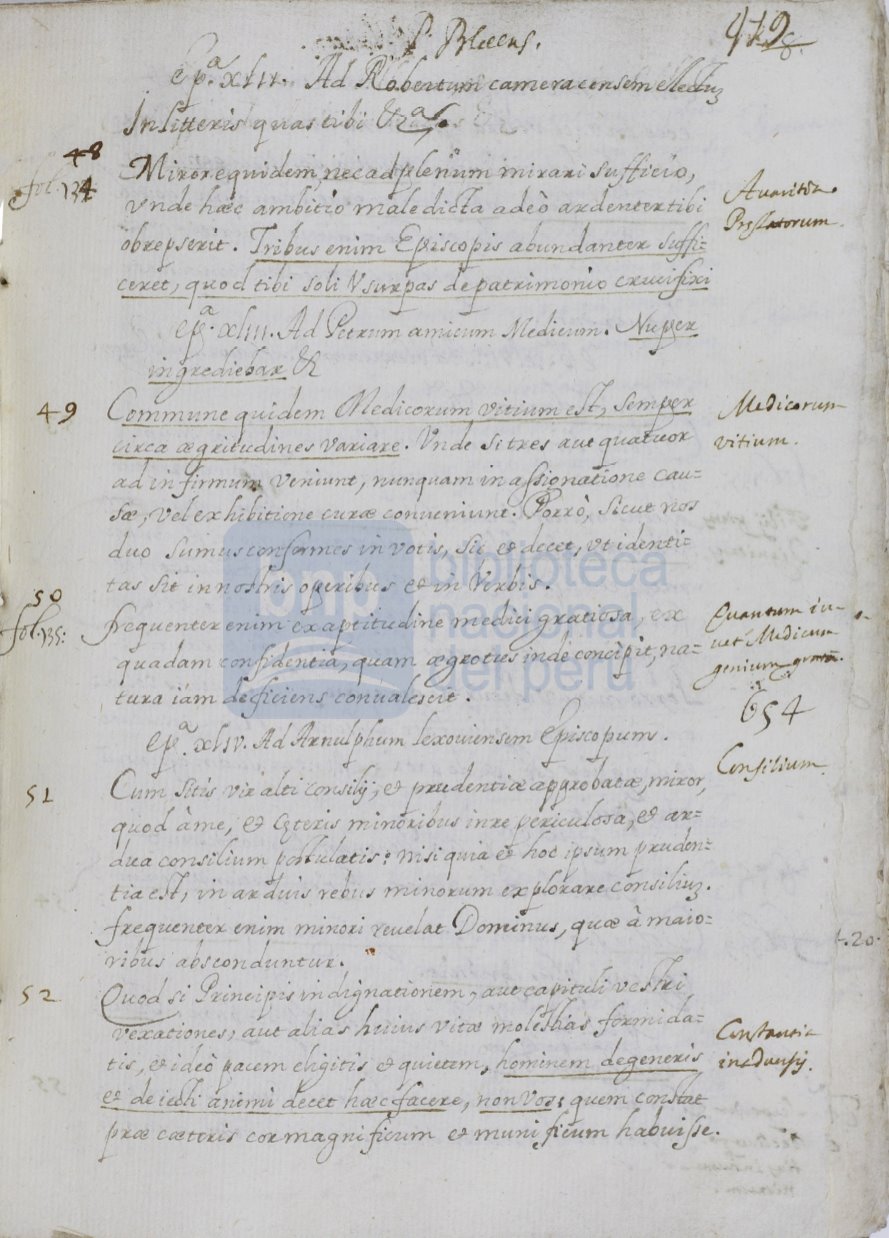 P. Blecens.
419
Ep.ª xlii. Ad Robertum cameracensem electuʒ
In litteris quas tibi &ª
48
fol. 134
Miror equidem, nec ad plenum mirari sufficio,
Vnde hæc ambitio maledicta adeò ardenter tibi
obrepserit. Tribus enim Episcopis abundanter suffi-
ceret, quod tibi soli Vsurpas de patrimonio crucifixi
Auaritia
Prælatorum
Ep.ª xliii. Ad Petrum amicum Medicum. Nuper
ingrediebar &
49
Commune quidem Medicorum vitium est, semper
circa ægritudines variare. Vnde si tres aut quatuor
ad infirmum veniunt, nunquam in assignatione cau-
sæ, vel exhibitione curæ conveniunt. Porrò, sicut nos
duo sumus conformes in votis, sic et decet, vt identi-
tas sit in nostris operibus et in Verbis.
Medicorum
vitium.
50
fol. 135:
frequenter enim ex aptitudine medici gratiosa, ex
quadam confidentia, quam ægrotus indè concipit, na-
tura iám deficiens convalescit.
Quantum iu-
uet Medicum
genium
654
Ep.ª xliv. Ad Arnulphum lexouiensem Episcopum.
51
Cum sitis vir alti consilij, et prudentiæ approbatæ, miror,
quod à me, et cæteris minoribus in re periculosa, et ar-
dua consilium postulatis: nisi quia et hoc ipsum pruden-
tia est, in arduis rebus minorum explorare consiliuʒ.
frequenter enim minori reuelat Dominus, quæ à maio-
ribus absconduntur.
Consilium.
52
Quod si Principis indignationem, aut capituli vestri
vexationes, aut alias huius vitæ molestias formida-
tis, et ideò pacem eligitis et quietem, hominem degeneris
et deiecti animi decet hæc facere, non vos: quem constat
præ cæteris cor magnificum et munificum habuisse.
Constantia
in aduersis.
bnp biblioteca
nacional
del perú